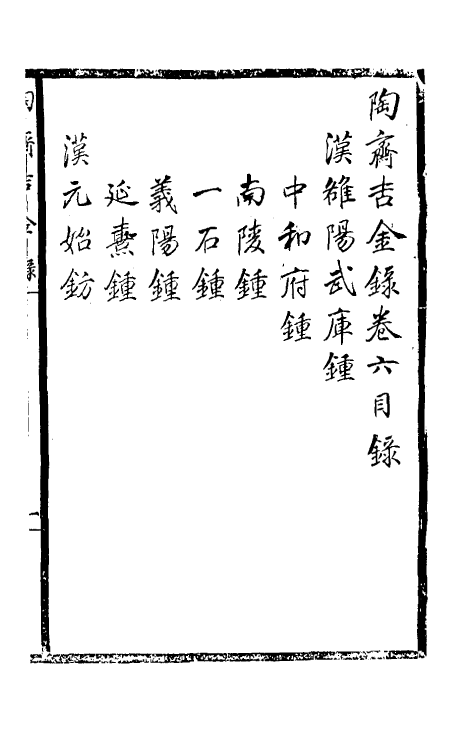 陶齋吉金錄卷六目錄
漢雒陽武庫鍾
中和府鍾
南陵鍾
一石鍾
義陽鍾
延熹鍾
漢元始鈁